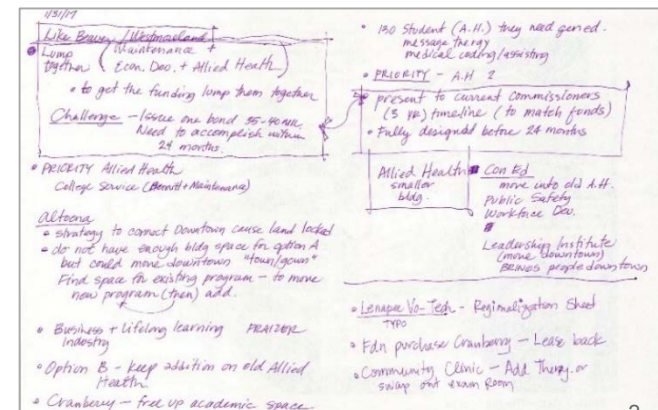 1/31/17
Like Beaver / Westmoreland
Lump together (Maintenance +
Econ. Dev. + Allied Health)
• to get the funding lump them together
Challenge – Issue one bond 35-40 mil.
Need to accomplish within
24 months.
• PRIORITY Allied Health
College Service (+ Maintenance)
Altoona
• strategy to connect Downtown cause land locked
• do not have enough bldg space for option A
but could move downtown "town/gown"
Find space for existing program – to move
new program (then) add.
• Business + Lifelong learning
Industry
• Option B – keep addition on old Allied
Health.
• Cranberry – free up academic space
• 130 Student (A.H.) they need gen ed.
message thergy
medical coding/assisting
• PRIORITY – A.H 2
• present to current commissioners
(3 yr) timeline (to match funds)
• Fully designed before 24 months
Allied Health
smaller
bldg.
Con Ed
move into old A.H.
Public Safety
Workforce Dev.
Leadership Institute
(move downtown)
BRINGS people downtown
• Lenape Vo-Tech – Regionalization Sheet
TYPO
• Fdn purchase Cranberry – Lease back
• Community Clinic – Add Thergy. or
swap out exam Room